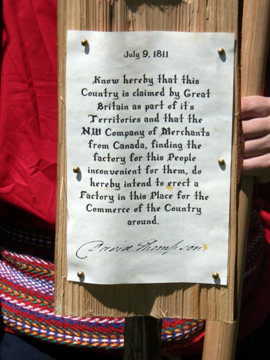 July 9, 1811
Know hereby that this
Country is claimed by Great
Britain as part of it's
Territories and that the
NW Company of Merchants
from Canada, finding the
factory for this People
inconvenient for them, do
hereby intend to erect a
Factory in this Place for the
Commerce of the Country
around.
David Thompson